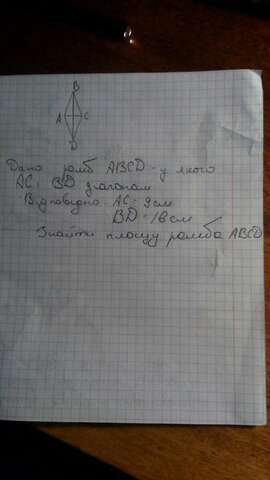 B
A C
D
Дано ромб ABCD - у якого
AC i BD діагоналі
Відповідно AC = 9 см
BD = 18 см
Знайти площу ромба ABCD